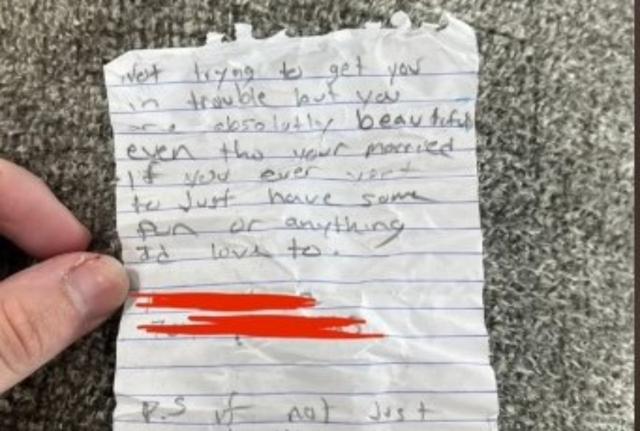 Not trying to get you
in trouble but you
are absolutly beautiful
even tho your married
if you ever want
to Just have some
fun or anything
Id love to.
P.S if not Just